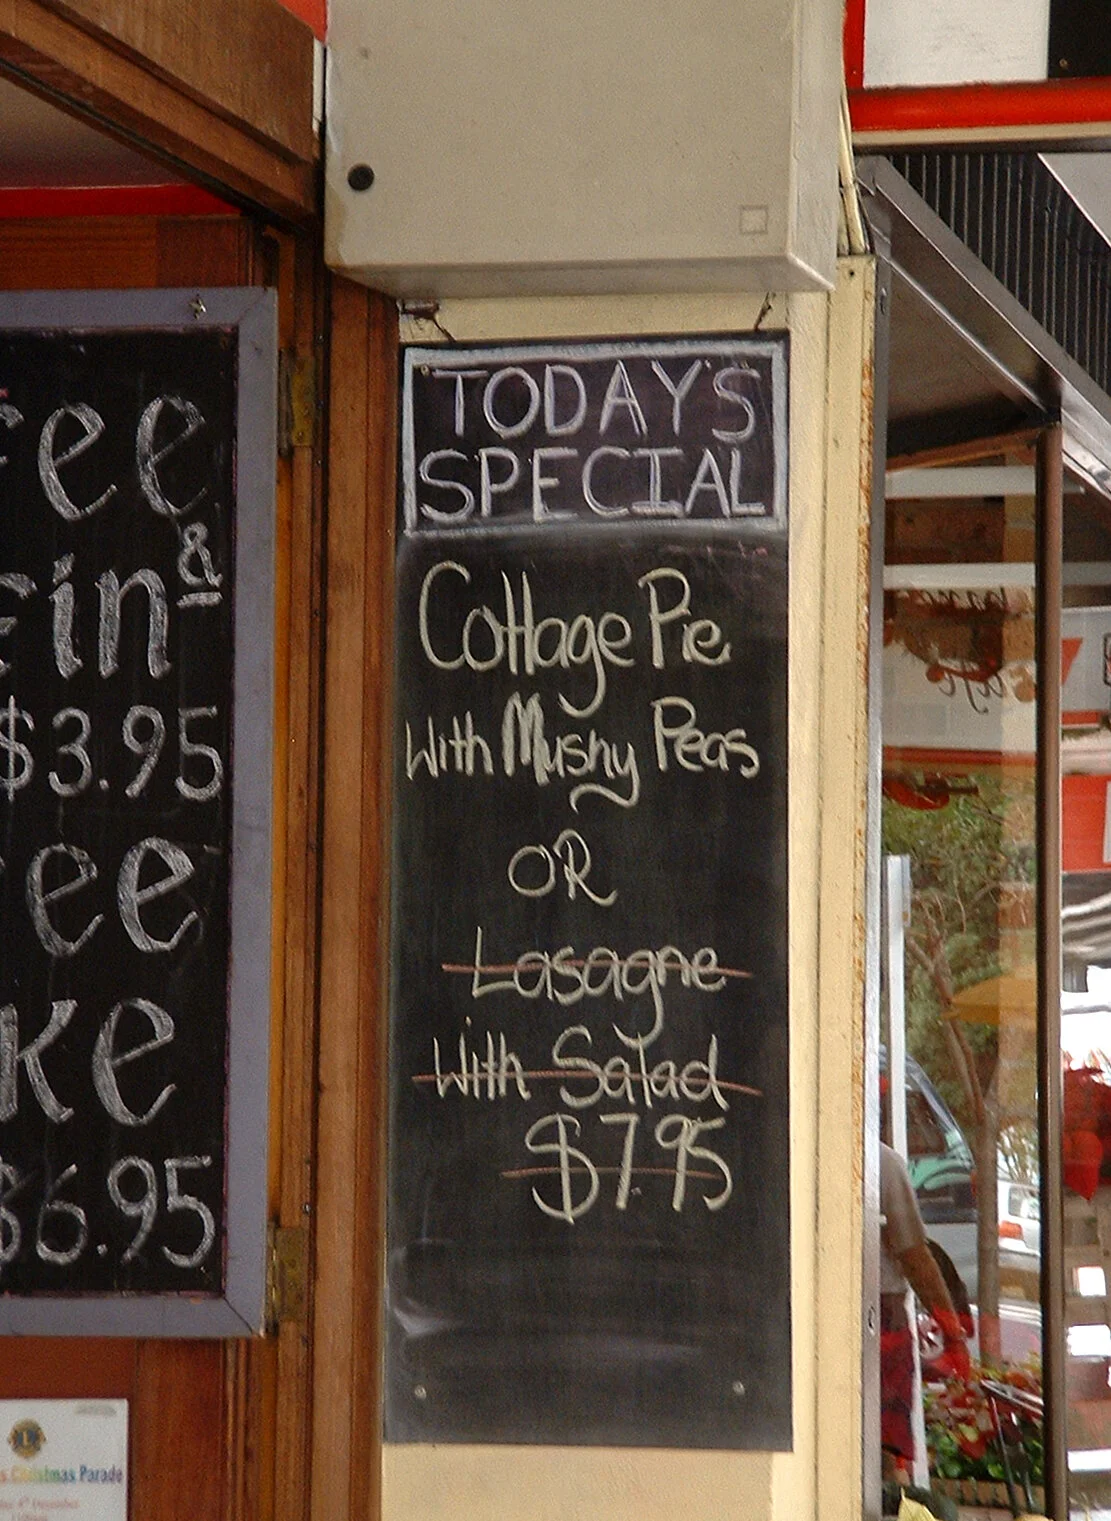 ee
&
fin
$3.95
ee
ke
$6.95
TODAY'S
SPECIAL
Cottage Pie
With Mushy Peas
OR
Lasagne
With Salad
$7.95
Christmas Parade